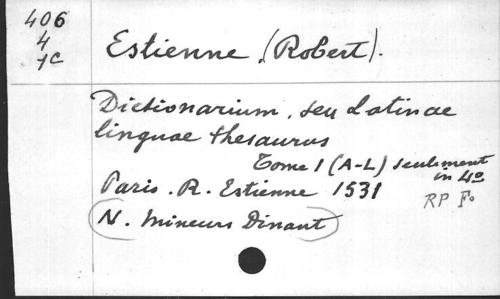 406
4
1C
Estienne, (Robert).
Dictionarium, seu Latinae
linguae thesaurus
Tome 1 (A-L) seulement
in 4º
Paris. R. Estienne 1531
RP Fº
(N. Mineurs Dinant)